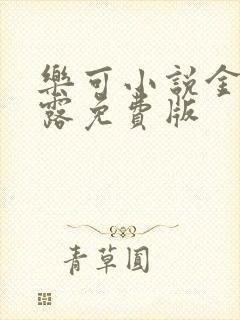 樂可小說金
露免費版
青草圓